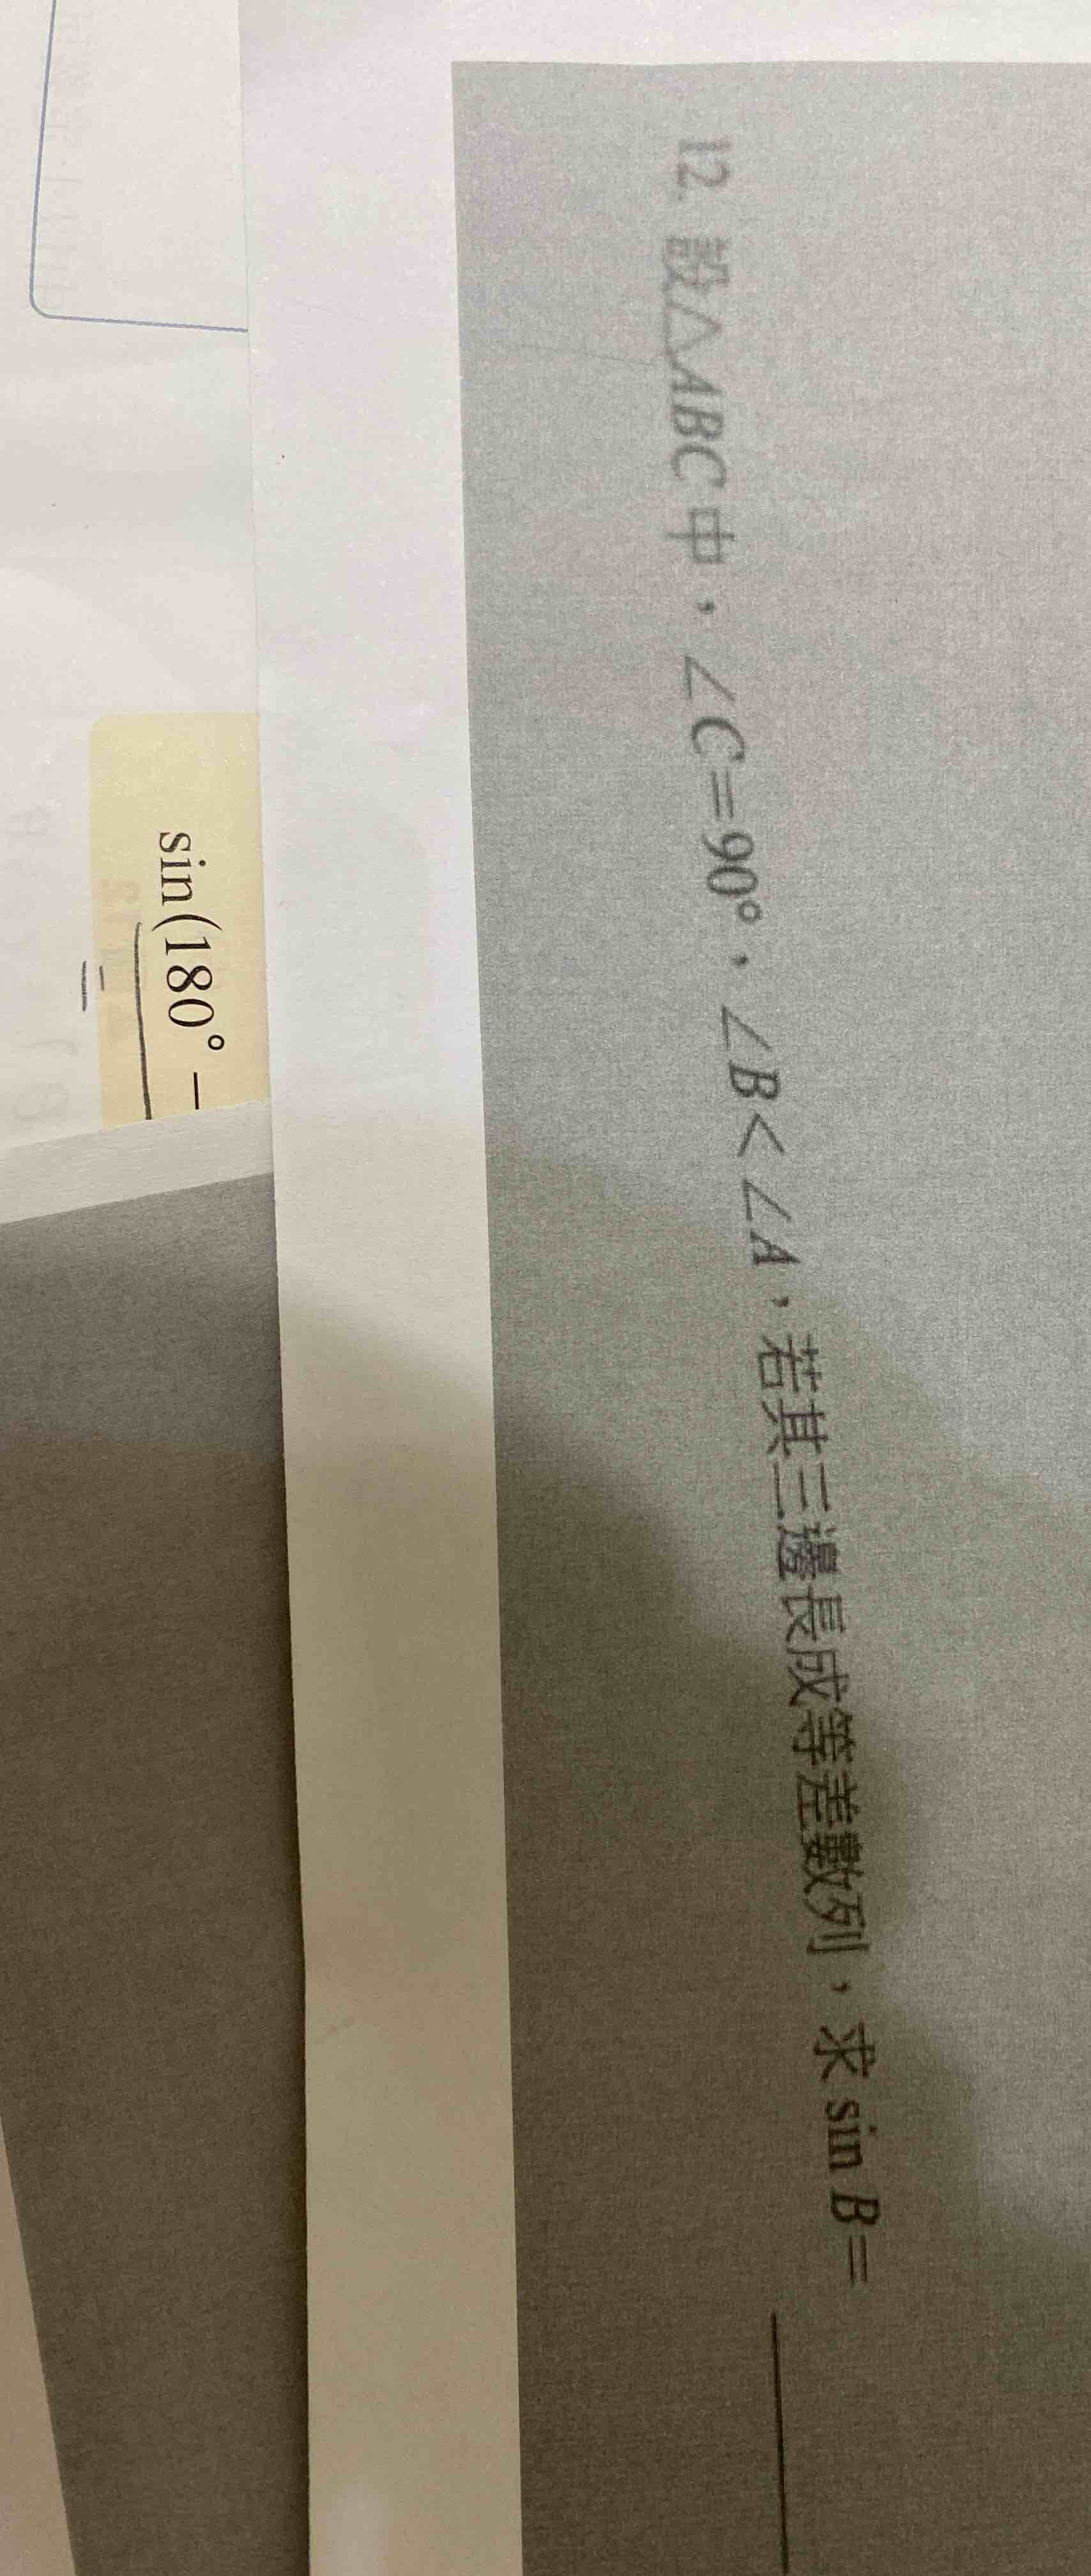 12. 設△ABC中，∠C=90°，∠B<∠A，若其三邊長成等差數列，求 sin B=
sin(180° −